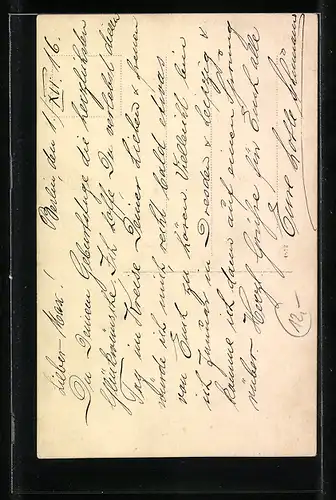 Berlin, den 1. XII. 16.
Lieber Max!
Zu Deinem Geburtstage die herzlichsten
Glückwünsche. Ich hoffe, Du verlebst den
Tag im Kreise Deiner Lieben &
würde ich mich recht bald etwas
von Euch zu hören. Vielleicht bin
ich in Dresden & Leipzig &
komme ich dann auf einen Sprung
rüber. Herzl. Grüße für Euch alle
Eure Lotte
12,-